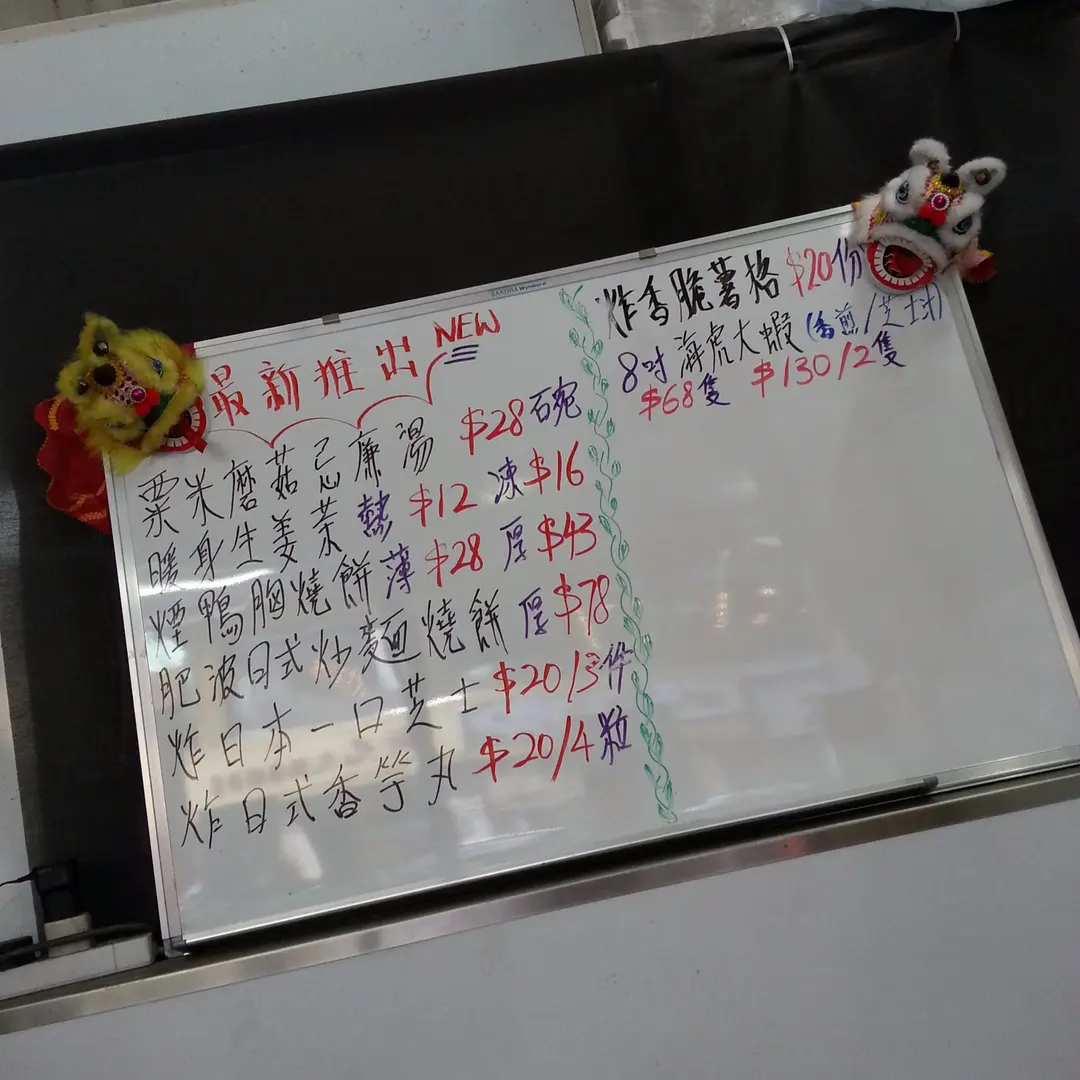 最新推出 NEW
粟米磨菇忌廉湯 $28碗
暖身生姜茶 熱 $12 凍 $16
煙鴨胸燒餅 薄 $28 厚 $43
肥波日式炒麵燒餅 厚 $78
炸日本一口芝士 $20/3件
炸日式香芋丸 $20/4粒
炸香脆薯格 $20份
8吋海虎大蝦(香煎/芝士焗)
$68隻 $130/2隻